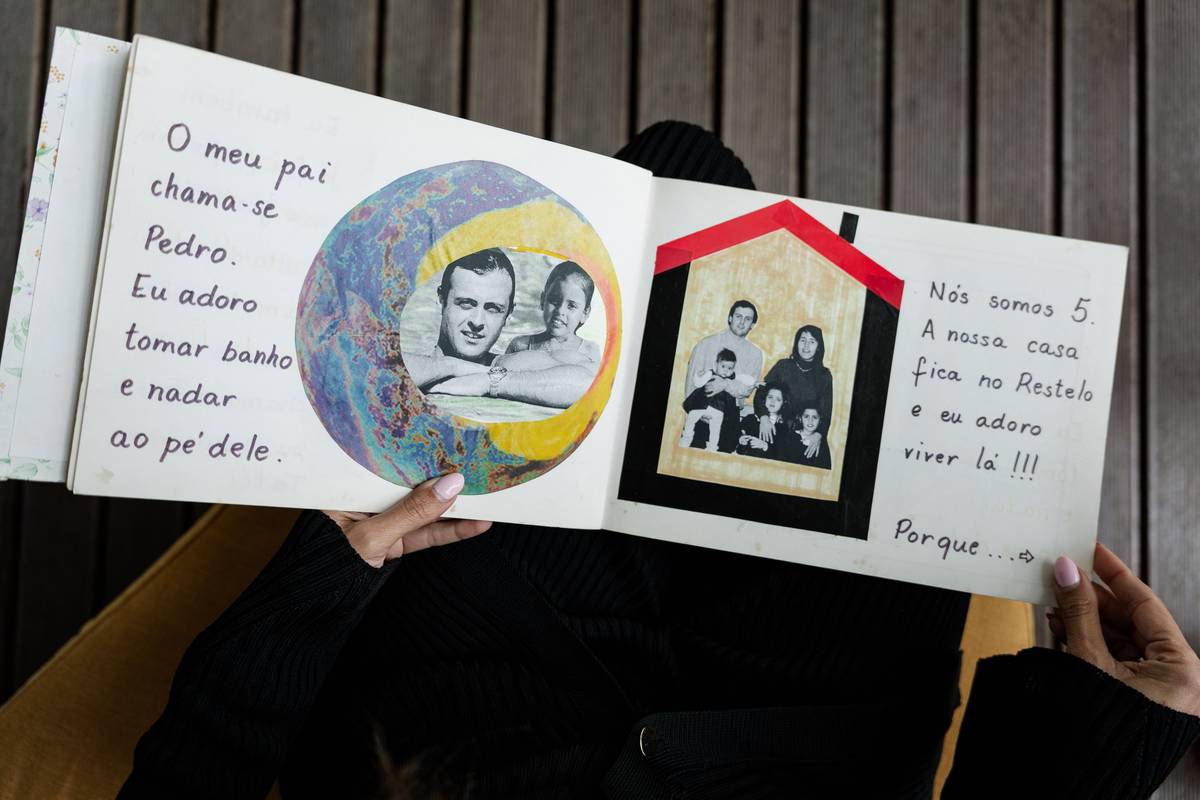 O meu pai
chama-se
Pedro.
Eu adoro
tomar banho
e nadar
ao pé dele.
Nós somos 5.
A nossa casa
fica no Restelo
e eu adoro
viver lá !!!
Porque...⇨